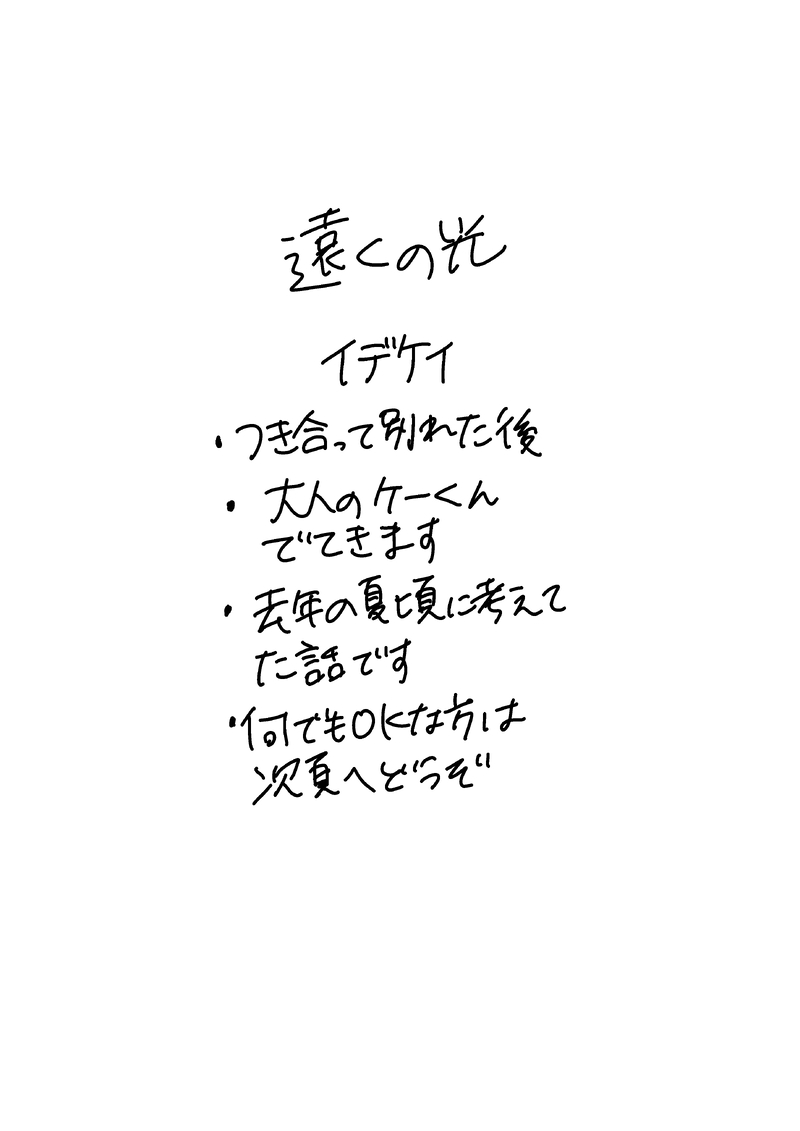 遠くの光
イデケイ
・つき合って別れた後
・大人のケーくん
でてきます
・去年の夏頃に考えて
た話です
・何でもOKな方は
次頁へどうぞ